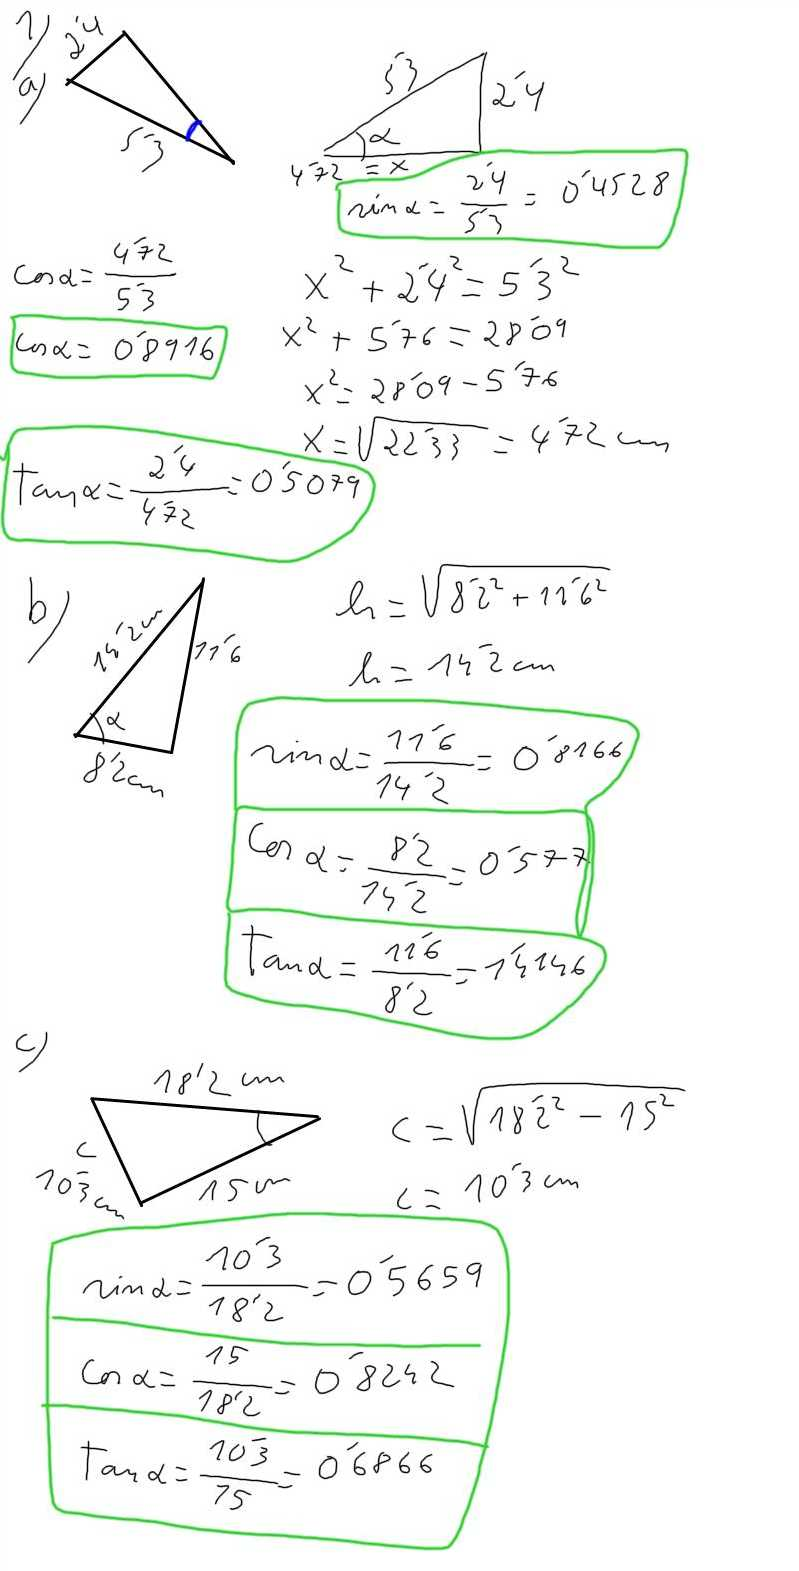 1)
a)
2'4
5'3
5'3
2'4
α
4'72 = x
sin α = 2'4/5'3 = 0'4528
cos α = 4'72/5'3
x² + 2'4² = 5'3²
cos α = 0'8916
x² + 5'76 = 28'09
x² = 28'09 - 5'76
x = √22'33 = 4'72 cm
tan α = 2'4/4'72 = 0'5079
b)
14'2 cm
11'6
α
8'2 cm
h = √8'2² + 11'6²
h = 14'2 cm
sin α = 11'6/14'2 = 0'8166
cos α = 8'2/14'2 = 0'577
tan α = 11'6/8'2 = 1'4146
c)
18'2 cm
c
10'3 cm
15 cm
c = √18'2² - 15²
c = 10'3 cm
sin α = 10'3/18'2 = 0'5659
cos α = 15/18'2 = 0'8242
tan α = 10'3/15 = 0'6866